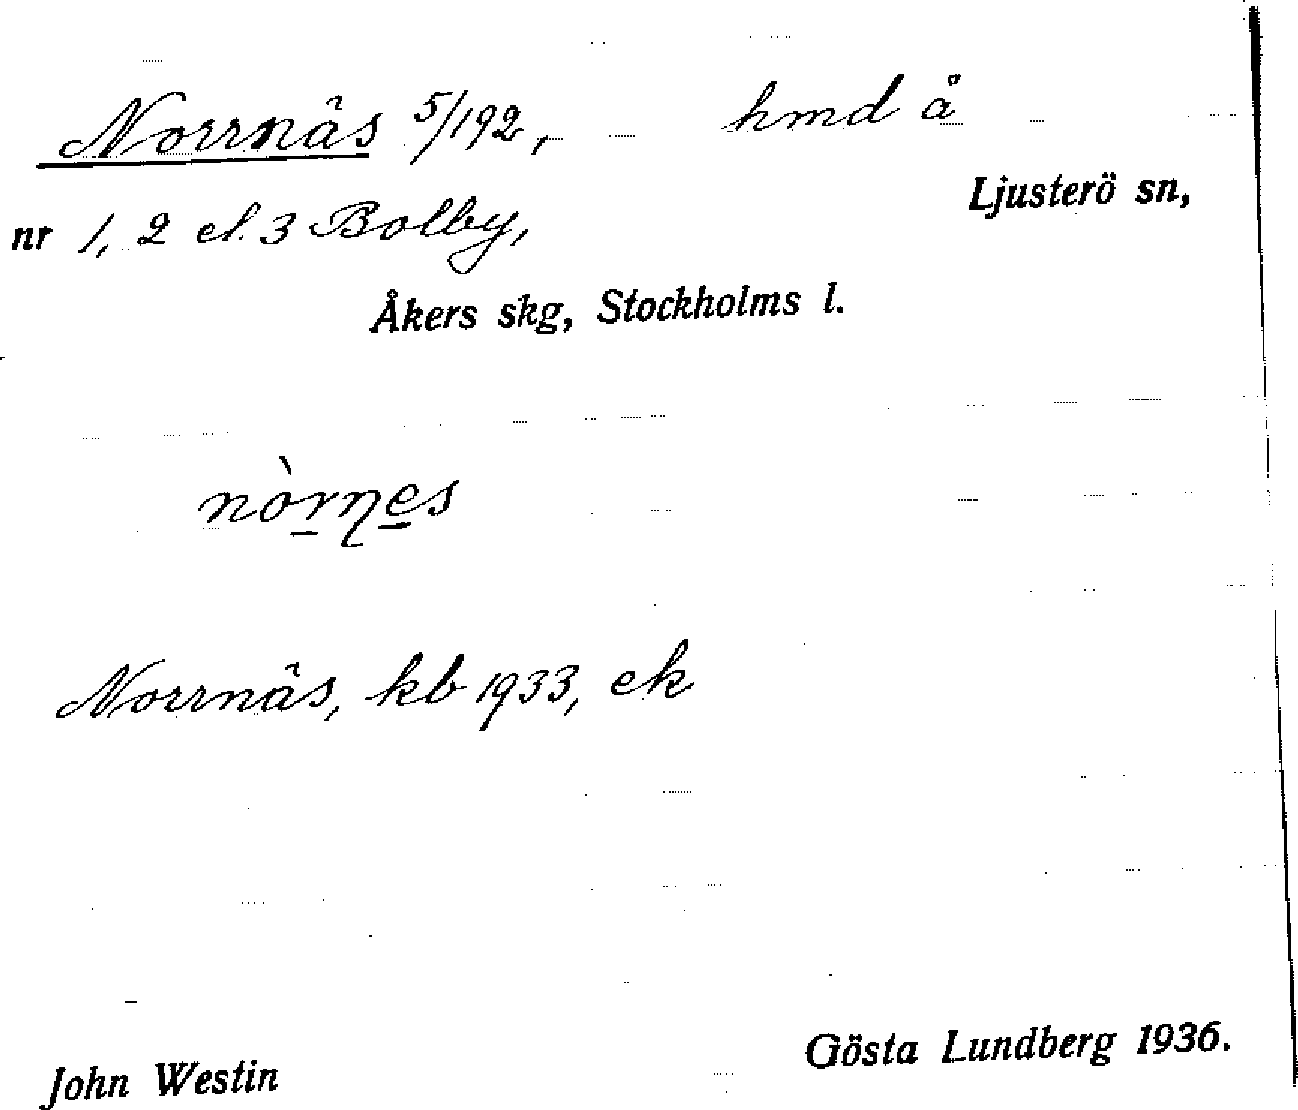 Norrnäs 5/192, hmd å
Ljusterö sn,
nr 1, 2 el. 3 Bolby,
Åkers skg, Stockholms l.
nòrηes
Norrnäs, kb 1933, ek
John Westin
Gösta Lundberg 1936.